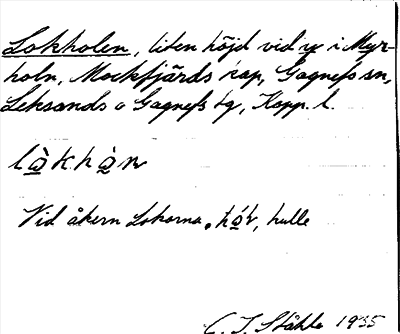 Lokholen, liten höjd vid   i Myr-
holn, Mockfjärds kap, Gagnefs sn,
Leksands o Gagnefs tg, Kopp. l.
Vid åkern Lokorna.   , hulle
C. I. Ståhle 1935